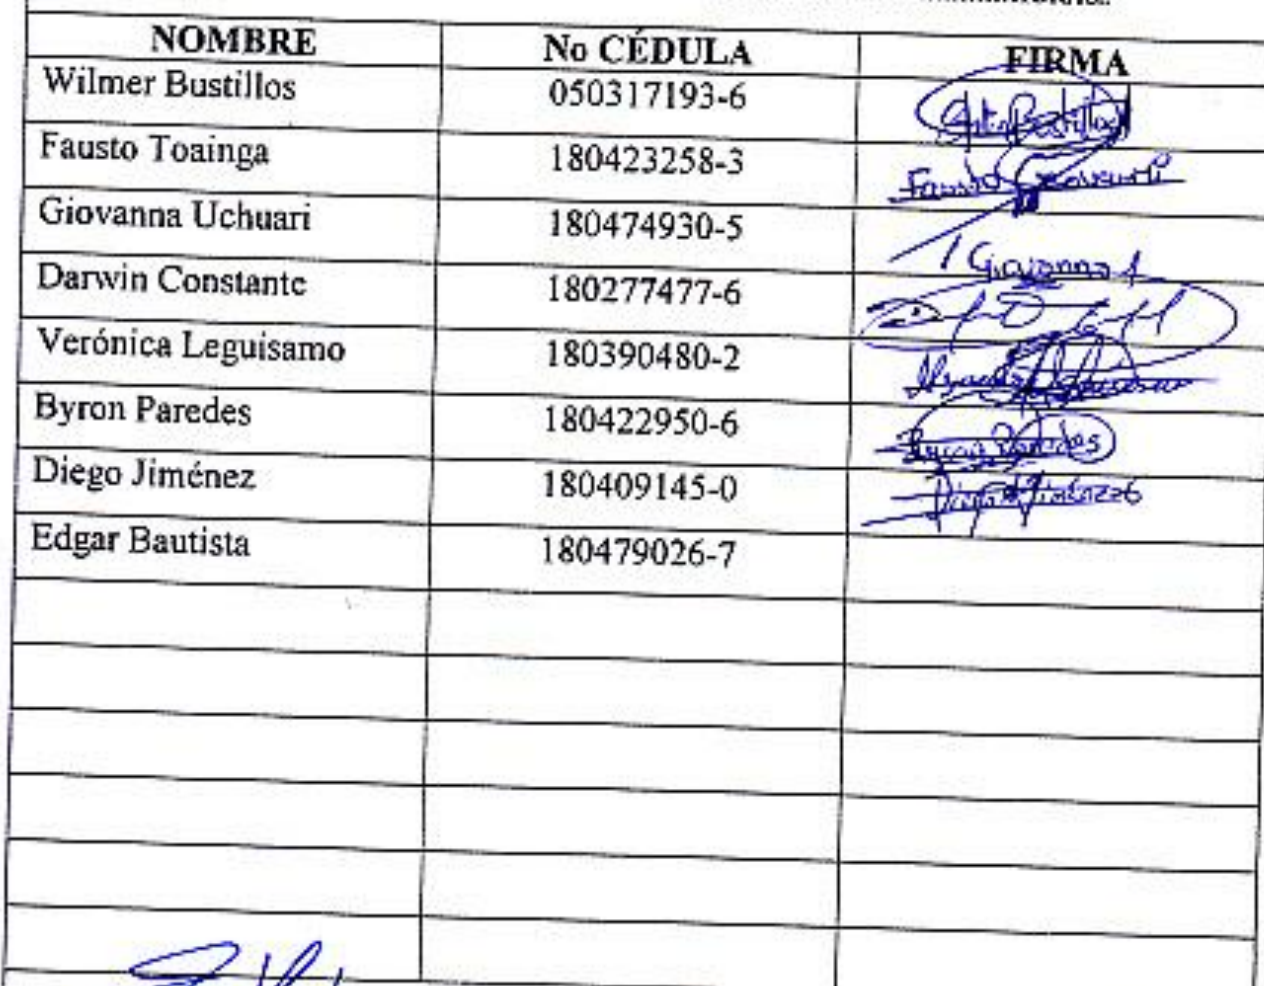 NOMBRE No CÉDULA FIRMA
Wilmer Bustillos 050317193-6
Fausto Toainga 180423258-3 Fausto
Giovanna Uchuari 180474930-5 Giovanna
Darwin Constante 180277477-6
Verónica Leguisamo 180390480-2
Byron Paredes 180422950-6 Byron Paredes
Diego Jiménez 180409145-0
Edgar Bautista 180479026-7